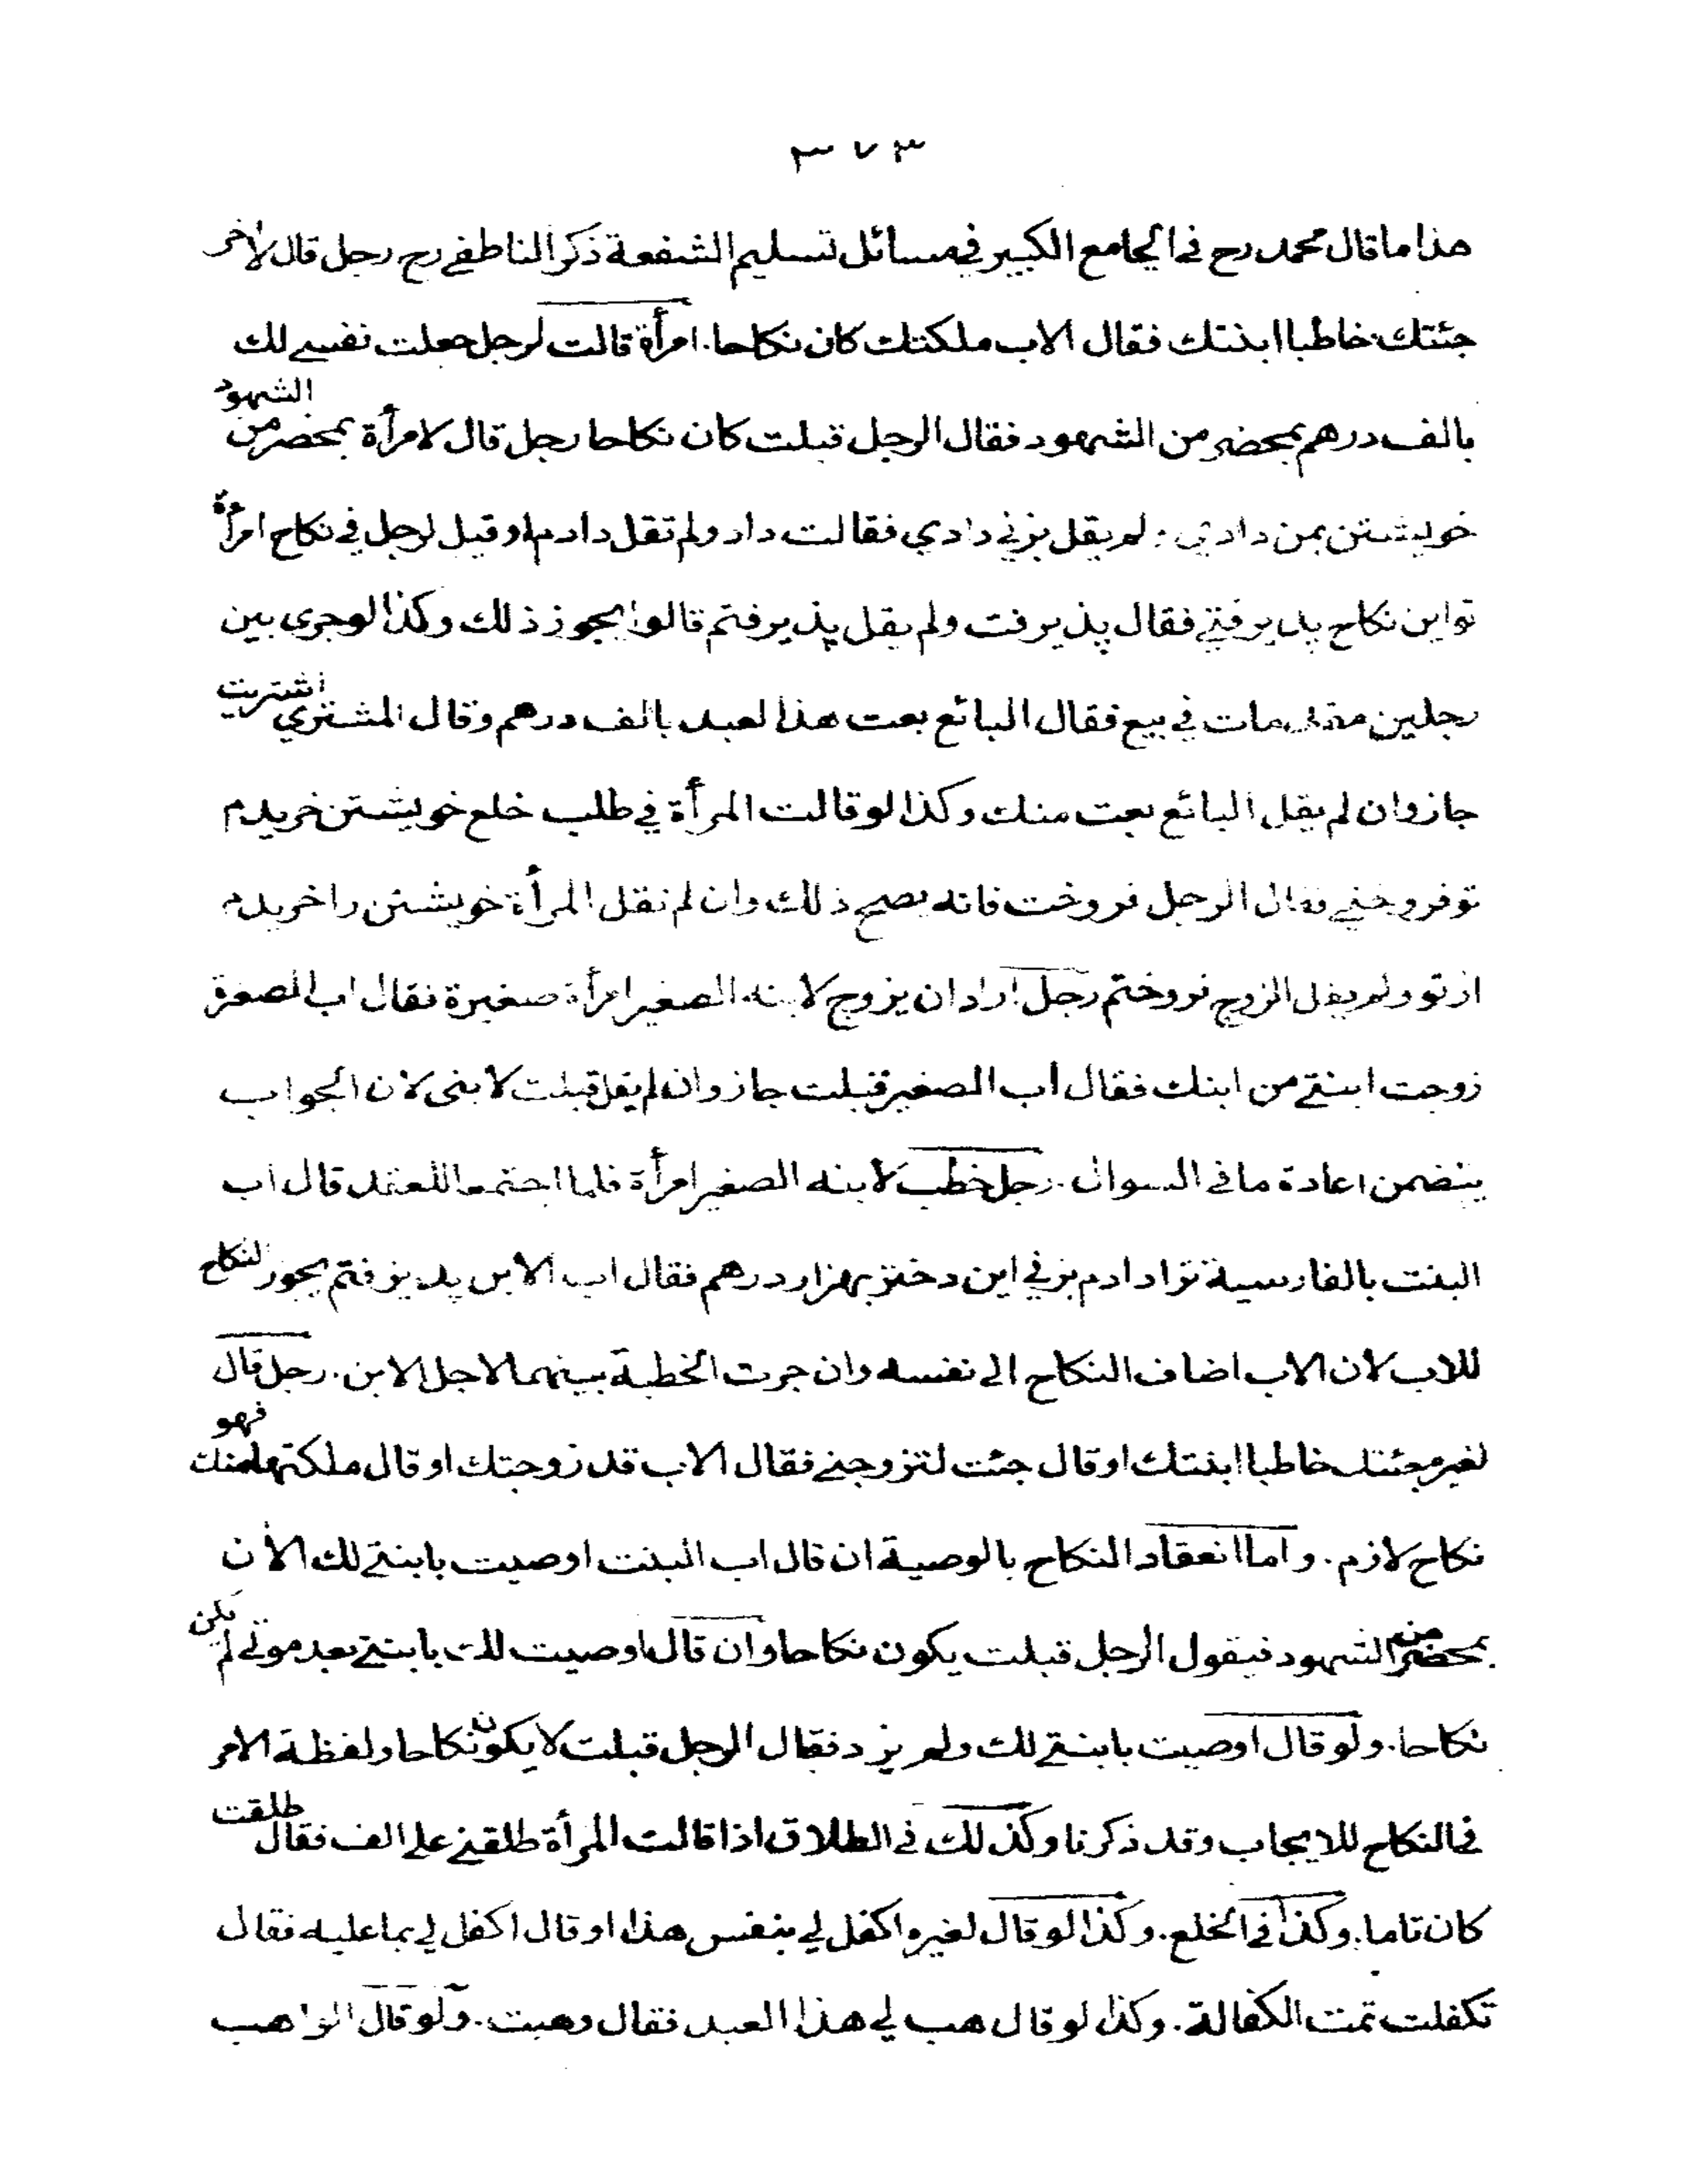 ٣٧٣
هذا ما قال محمد رح في الجامع الكبير في مسائل تسليم الشفعة ذكر الناطفي رح رجل قال لاخر
جئتك خاطبا ابنتك فقال الاب ملكتك كان نكاحا. امرأة قالت لرجل جعلت نفسي لك
بالف درهم بمحضر من الشهود فقال الرجل قبلت كان نكاحا رجل قال لامرأة بمحضر من الشهود
خويشتن بمن دادي ولم يقل بزني دادي فقالت داد ولم تقل دادم او قيل لرجل في نكاح امرأة
تو اين نكاح پذيرفتي فقال پذيرفت ولم يقل پذيرفتم قالوا يجوز ذلك وكذا لوجرى بين
رجلين مقدمات في بيع فقال البائع بعت هذا لعبد بالف درهم وقال المشتري اشتريت
جاز وان لم يقل البائع بعت منك وكذا لو قالت المرأة في طلب خلع خويشتن خريدم
توفروختي فقال الرجل فروخت فانه يصح ذلك وان لم تقل المرأة خويشتن را خريدم
ازتو ولم يقل الزوج فروختم رجل اراد ان يزوج لابنه الصغير امرأة صغيرة فقال اب الصغيرة
زوجت ابنتي من ابنك فقال اب الصغير قبلت جاز وان لم يقل قبلت لابنى لان الجواب
يتضمن اعادة ما في السوال. رجل خطب لابنه الصغير امرأة فلما اجتمعا للعقد قال اب
البنت بالفارسية ترا دادم بزني اين دختر بهزار درهم فقال اب الابن پذيرفتم يجوز النكاح
للاب لان الاب اضاف النكاح الى نفسه وان جرت الخطبة بينهما لاجل الابن. رجل قال
لغيره جئتك خاطبا ابنتك او قال جئت لتزوجني فقال الاب قد زوجتك او قال ملكتها منك فهو
نكاح لازم. واما انعقاد النكاح بالوصية ان قال اب البنت اوصيت بابنتي لك الآن
بمحضر من الشهود فيقول الرجل قبلت يكون نكاحا وان قال اوصيت لك بابنتي بعد موتي لم يكن
نكاحا. ولو قال اوصيت بابنتي لك ولم يزد فقال الرجل قبلت لا يكون نكاحا ولفظة الامر
في النكاح للايجاب وقد ذكرنا وكذلك في الطلاق اذا قالت المرأة طلقني على الف فقال طلقت
كان تاما. وكذا في الخلع. وكذا لو قال لغيره اكفل لي بنفس هذا او قال اكفل لي بما عليه فقال
تكفلت تمت الكفالة. وكذا لو قال هب لي هذا العبد فقال وهبت. ولو قال الواهب